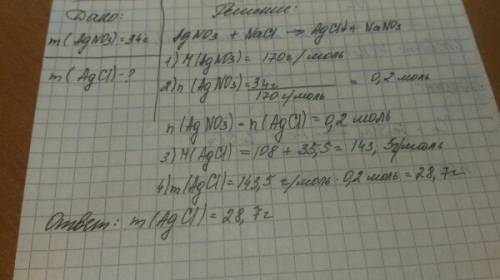 Дано:
m(AgNO3)=34г
m(AgCl)-?
Решение:
AgNO3 + NaCl → AgCl↓ + NaNO3
1) M(AgNO3) = 170г/моль
2) n(AgNO3) = 34г / 170г/моль = 0,2 моль
n(AgNO3) = n(AgCl) = 0,2 моль
3) M(AgCl) = 108 + 35,5 = 143,5г/моль
4) m(AgCl) = 143,5 г/моль · 0,2 моль = 28,7г
Ответ: m(AgCl) = 28,7г